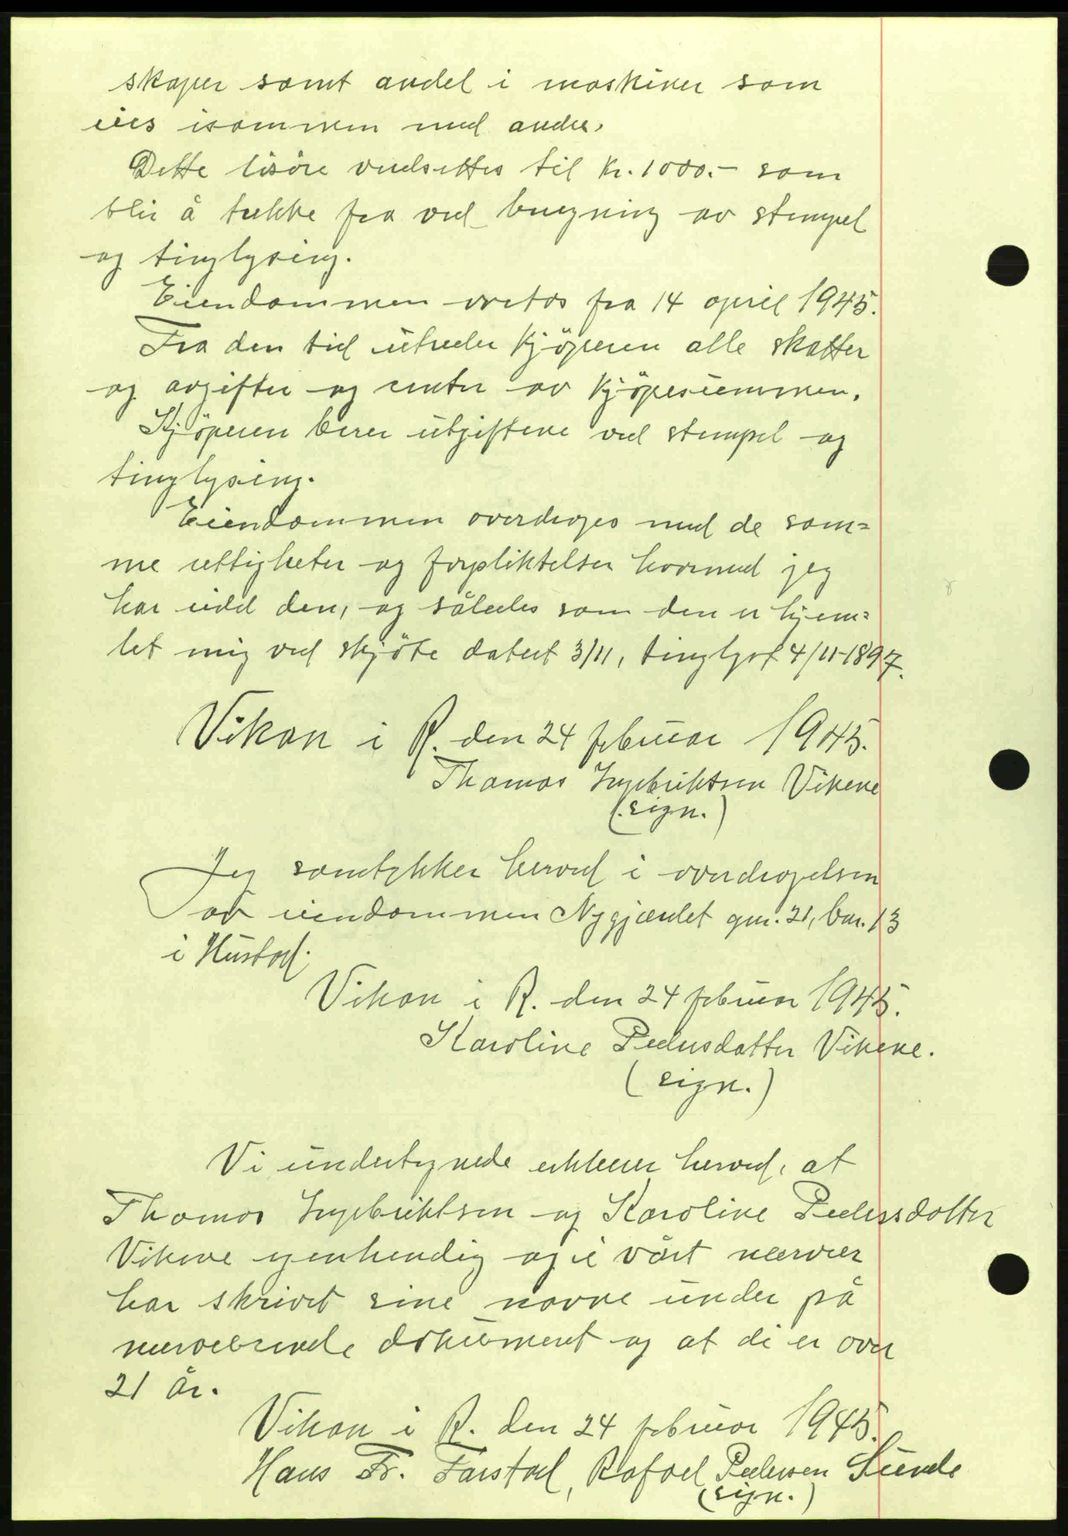 skaper samt andel i maskiner som
eies isammen med andre.
Dette lösöre verdsettes til kr. 1000.- som
blir å trekke fra ved beregning av stempel
og tinglysing.
Eiendommen overtas fra 14 april 1945.
Fra den tid utreder kjöperen alle skatter
og avgifter og renter av kjöpesummen.
Kjöperen bærer utgiftene ved stempel og
tinglysing.
Eiendommen overdrages med de sam=
me rettigheter og forpliktelser hvormed jeg
har eidd den, og således som den er hjem=
let mig ved skjöte datert 3/11, tinglyst 4/11-1897.
Vikan i R. den 24 februar 1945.
Thomas Ingebriktsen Vikene
(sign.)
Jeg samtykker herved i overdragelsen
av eiendommen Nygjærdet gnr. 21, bnr. 13
i Hustad.
Vikan i R. den 24 februar 1945.
Karoline Pedersdatter Vikene.
(sign.)
Vi undertegnede erklærer herved, at
Thomas Ingebriktsen og Karoline Pederssdatter
Vikene egenhendig og i vårt nærvær
har skrivet sine navne under på
nærværende dokument og at de er over
21 år.
Vikan i R. den 24 februar 1945.
Hans Fr. Farstad, Rafael Pedersen Sunde
(sign.)